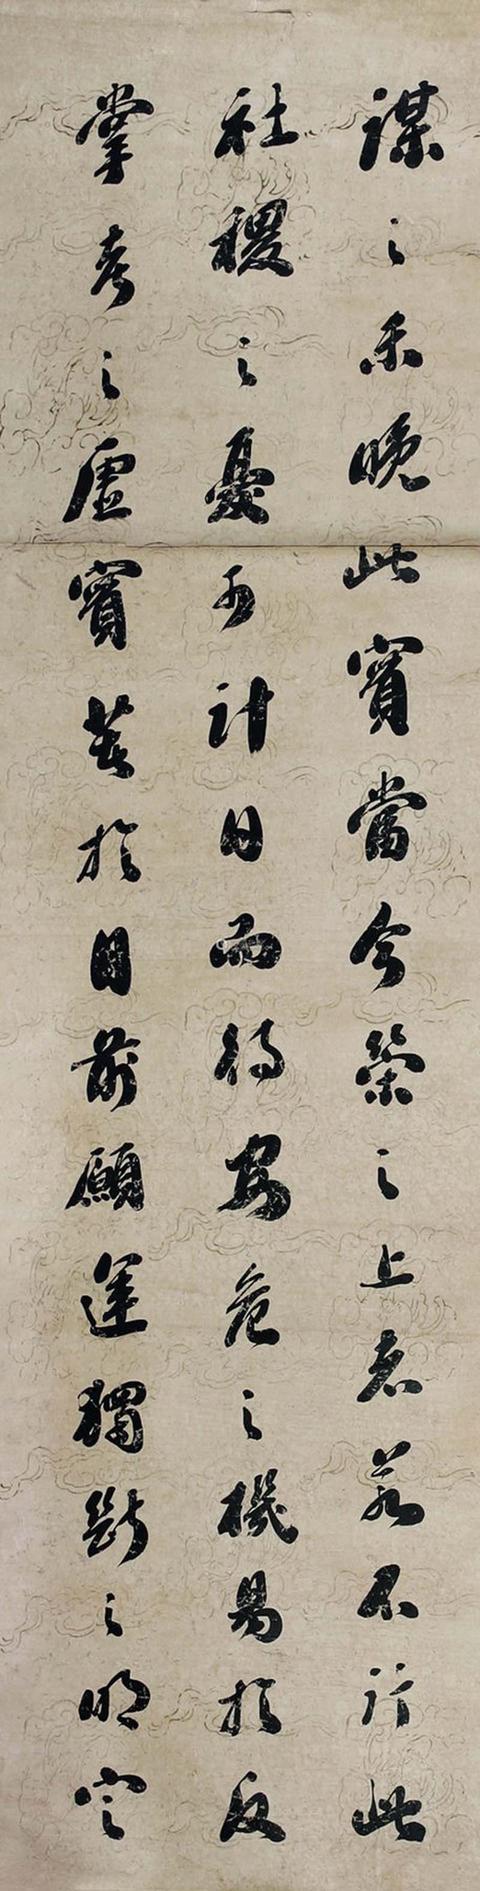 謀之未晚此實當今策之上者若不行此
社稷之憂可計日而待安危之機易於反
掌考之虛實若於目前願運獨斷之明定